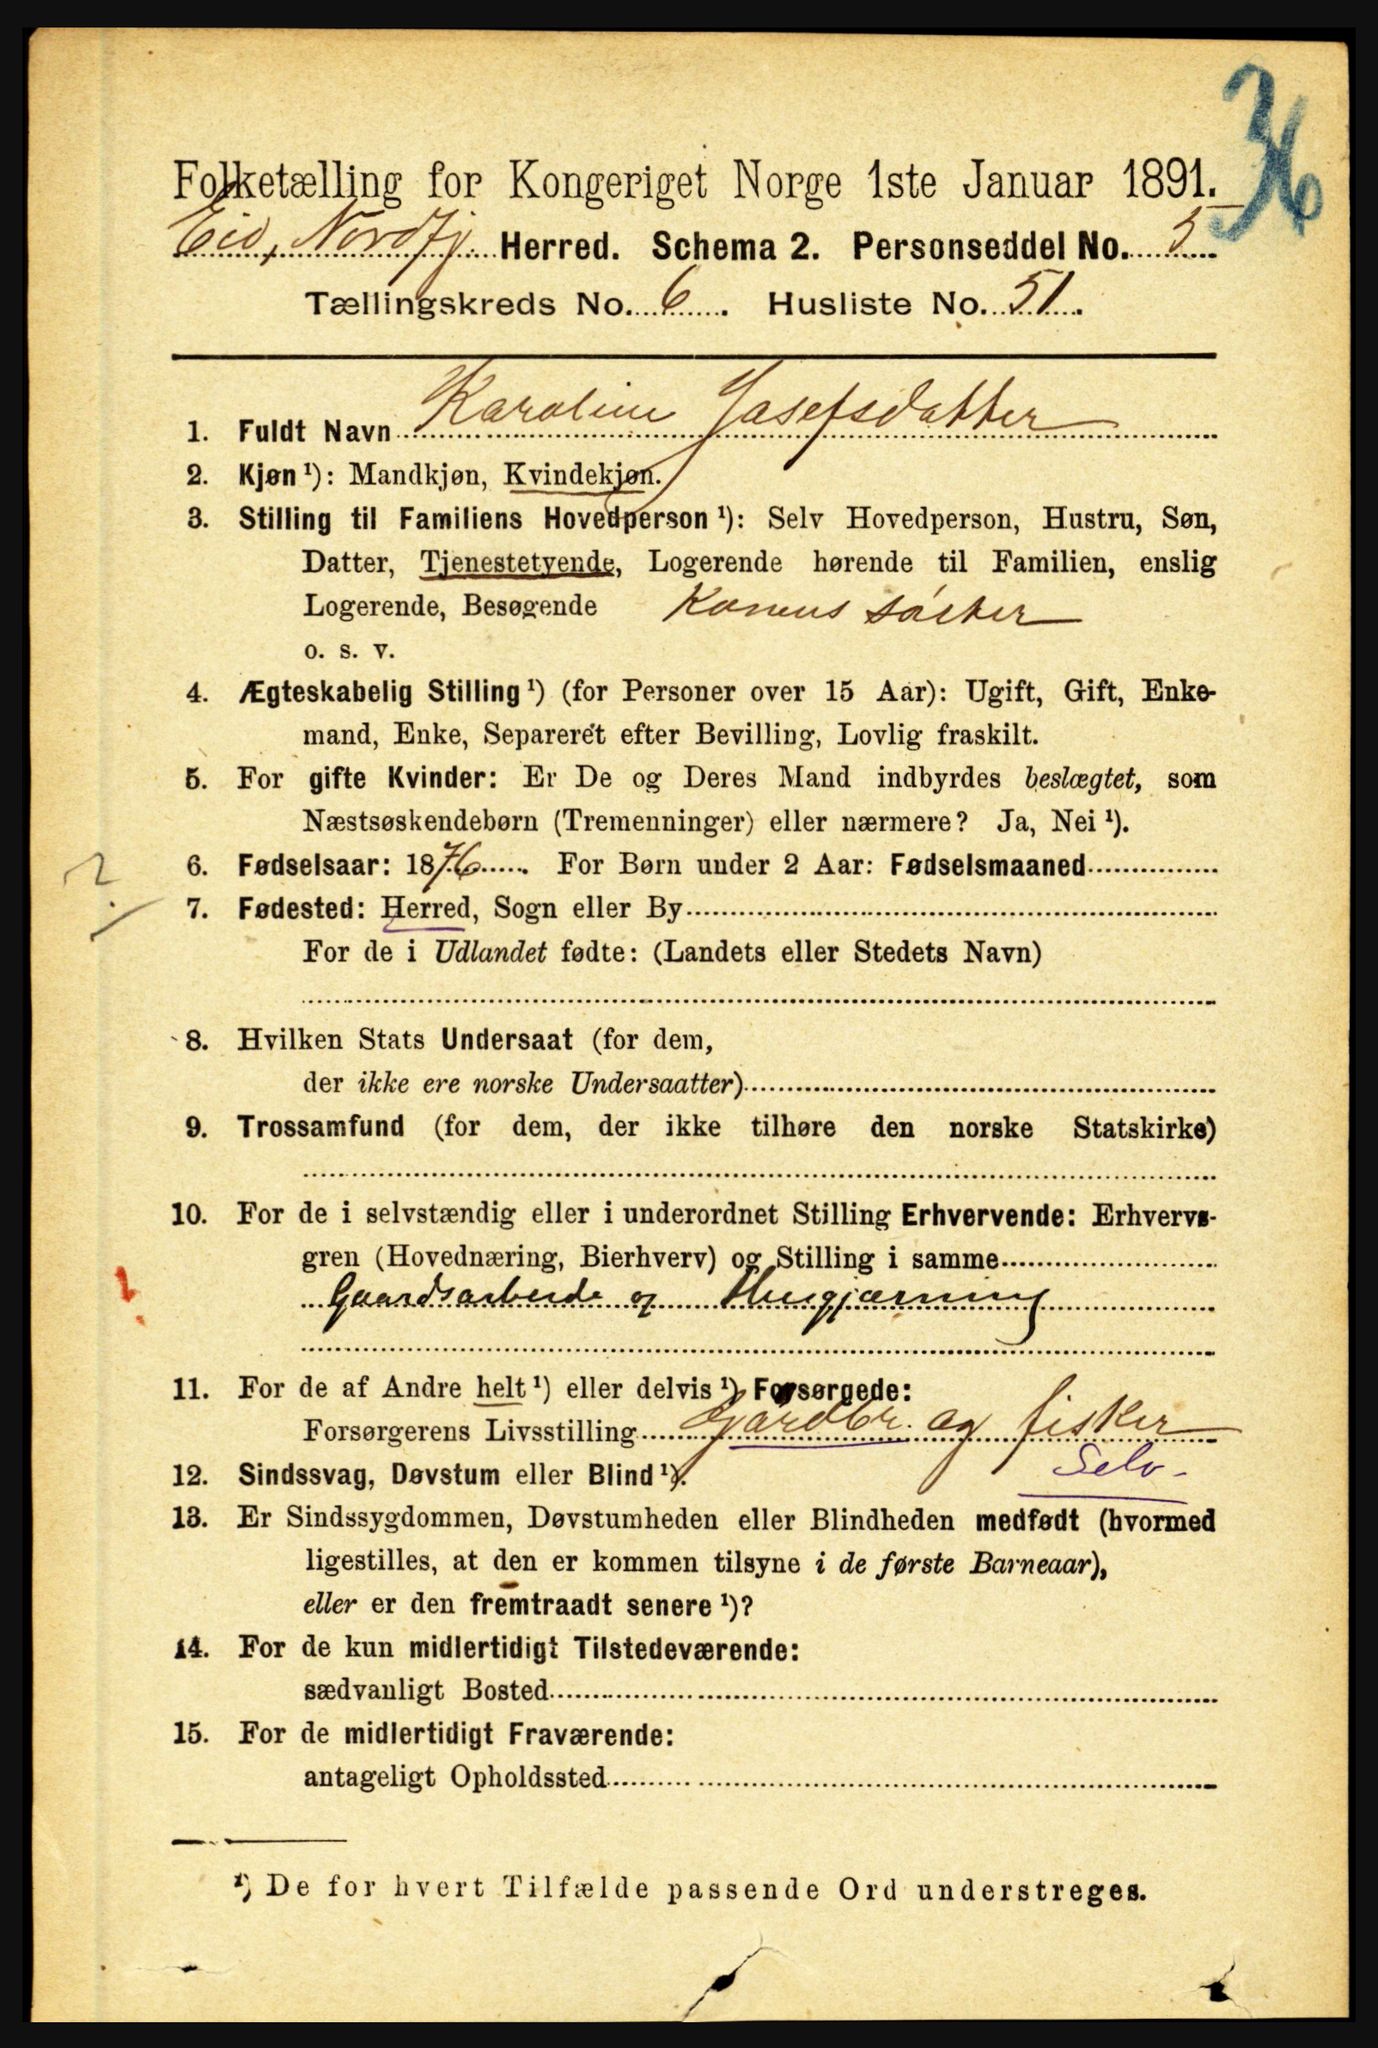 36
Folketælling for Kongeriget Norge 1ste Januar 1891.
Eid, Nordfj. Herred. Schema 2. Personseddel No. 5
Tællingskreds No. 6. Husliste No. 51.
1. Fuldt Navn Karoline Josefsdatter
2. Kjøn ¹): Mandkjøn, Kvindekjøn.
3. Stilling til Familiens Hovedperson ¹): Selv Hovedperson, Hustru, Søn,
Datter, Tjenestetyende, Logerende hørende til Familien, enslig
Logerende, Besøgende Konens søster
o. s. v.
4. Ægteskabelig Stilling ¹) (for Personer over 15 Aar): Ugift, Gift, Enke-
mand, Enke, Separeret efter Bevilling, Lovlig fraskilt.
5. For gifte Kvinder: Er De og Deres Mand indbyrdes beslægtet, som
Næstsøskendebørn (Tremenninger) eller nærmere? Ja, Nei ¹).
? 6. Fødselsaar: 1876. For Børn under 2 Aar: Fødselsmaaned
7. Fødested: Herred, Sogn eller By
For de i Udlandet fødte: (Landets eller Stedets Navn)
8. Hvilken Stats Undersaat (for dem,
der ikke ere norske Undersaatter)
9. Trossamfund (for dem, der ikke tilhøre den norske Statskirke)
10. For de i selvstændig eller i underordnet Stilling Erhvervende: Erhvervs-
gren (Hovednæring, Bierhverv) og Stilling i samme
Gaardsarbeide og Husgjærning
11. For de af Andre helt ¹) eller delvis ¹) Forsørgede:
Forsørgerens Livsstilling Gårdbr. og fisker
12. Sindssvag, Døvstum eller Blind ¹). Selv
13. Er Sindssygdommen, Døvstumheden eller Blindheden medfødt (hvormed
ligestilles, at den er kommen tilsyne i de første Barneaar),
eller er den fremtraadt senere ¹)?
14. For de kun midlertidigt Tilstedeværende:
sædvanligt Bosted
15. For de midlertidigt Fraværende:
antageligt Opholdssted
¹) De for hvert Tilfælde passende Ord understreges.